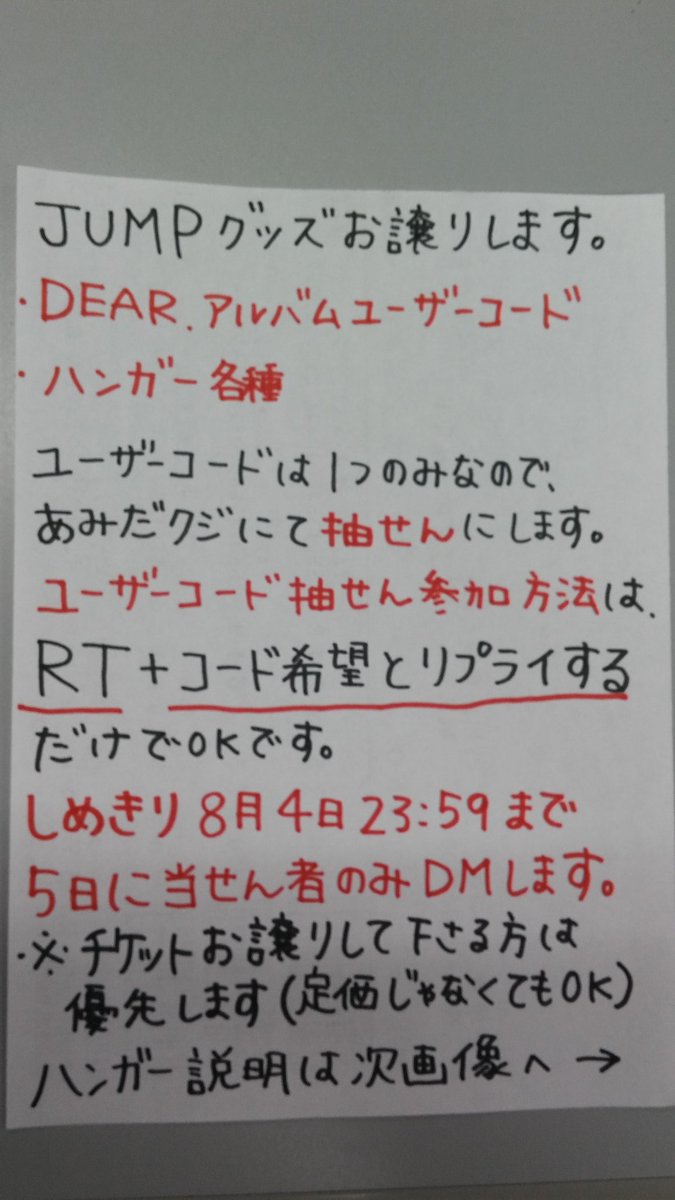 JUMPグッズお譲りします。
・DEAR.アルバムユーザーコード
・ハンガー各種
ユーザーコードは1つのみなので、
あみだクジにて抽せんにします。
ユーザーコード抽せん参加方法は、
RT+コード希望とリプライする
だけでOKです。
しめきり8月4日23:59まで
5日に当せん者のみDMします。
・※チケットお譲りして下さる方は
優先します(定価じゃなくてもOK)
ハンガー説明は次画像へ→